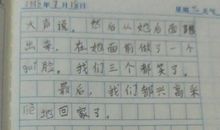 大声说。然后从她后面跳
出来,在她面前做了一个
gui脸。我们三个都笑了。
最后,我们都兴高采
地回家了。